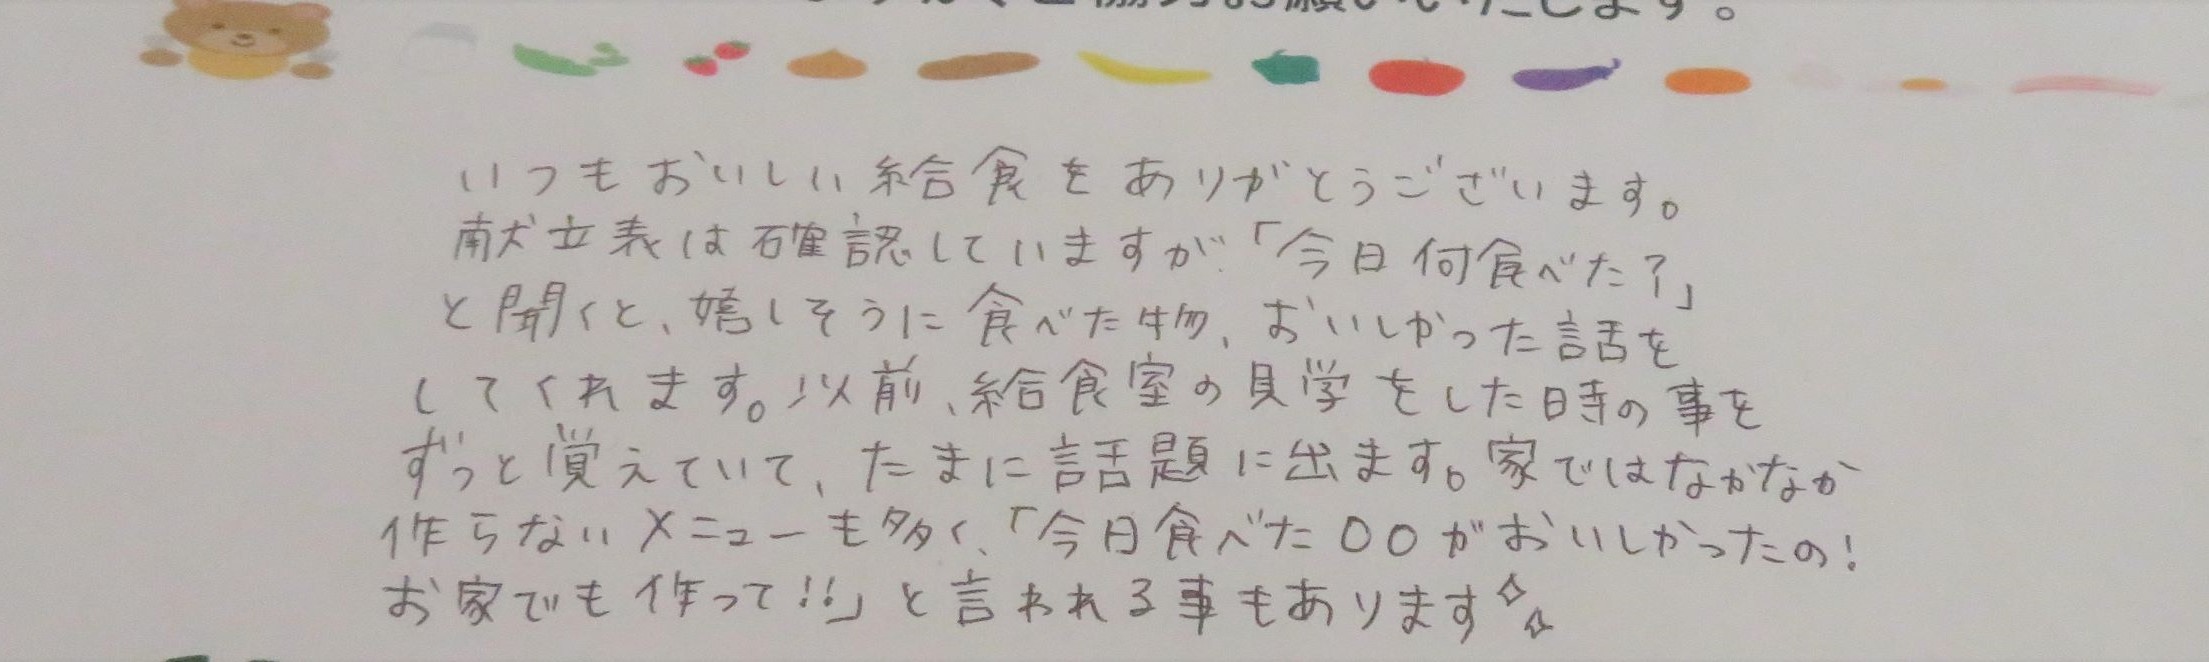 ご協力お願いいたします。
いつもおいしい給食をありがとうございます。
献立表は確認していますが「今日何食べた?」
と聞くと、嬉しそうに食べた物、おいしかった話を
してくれます。以前、給食室の見学をした時の事を
ずっと覚えていて、たまに話題に出ます。家ではなかなか
作らないメニューも多く、「今日食べた〇〇がおいしかったの!
お家でも作って!!」と言われる事もあります